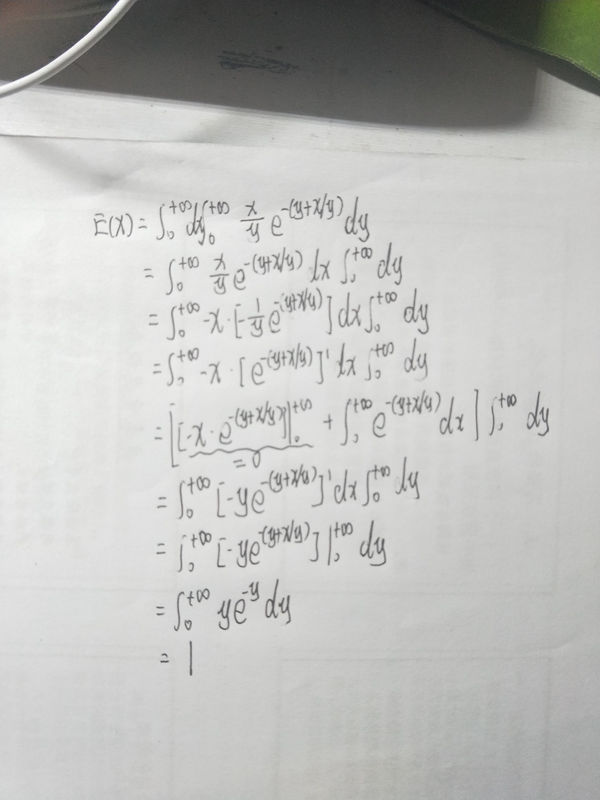 E(X) = ∫₀^{+∞} dy ∫₀^{+∞} x/y e^{-(y+x/y)} dy
= ∫₀^{+∞} x/y e^{-(y+x/y)} dx ∫₀^{+∞} dy
= ∫₀^{+∞} -x · [-1/y e^{-(y+x/y)}] dx ∫₀^{+∞} dy
= ∫₀^{+∞} -x · [e^{-(y+x/y)}]' dx ∫₀^{+∞} dy
= [[-x · e^{-(y+x/y)}]|₀^{+∞} + ∫₀^{+∞} e^{-(y+x/y)} dx] ∫₀^{+∞} dy
= 0
= ∫₀^{+∞} [-y e^{-(y+x/y)}]' dx ∫₀^{+∞} dy
= ∫₀^{+∞} [-y e^{-(y+x/y)}]|₀^{+∞} dy
= ∫₀^{+∞} y e^{-y} dy
= 1